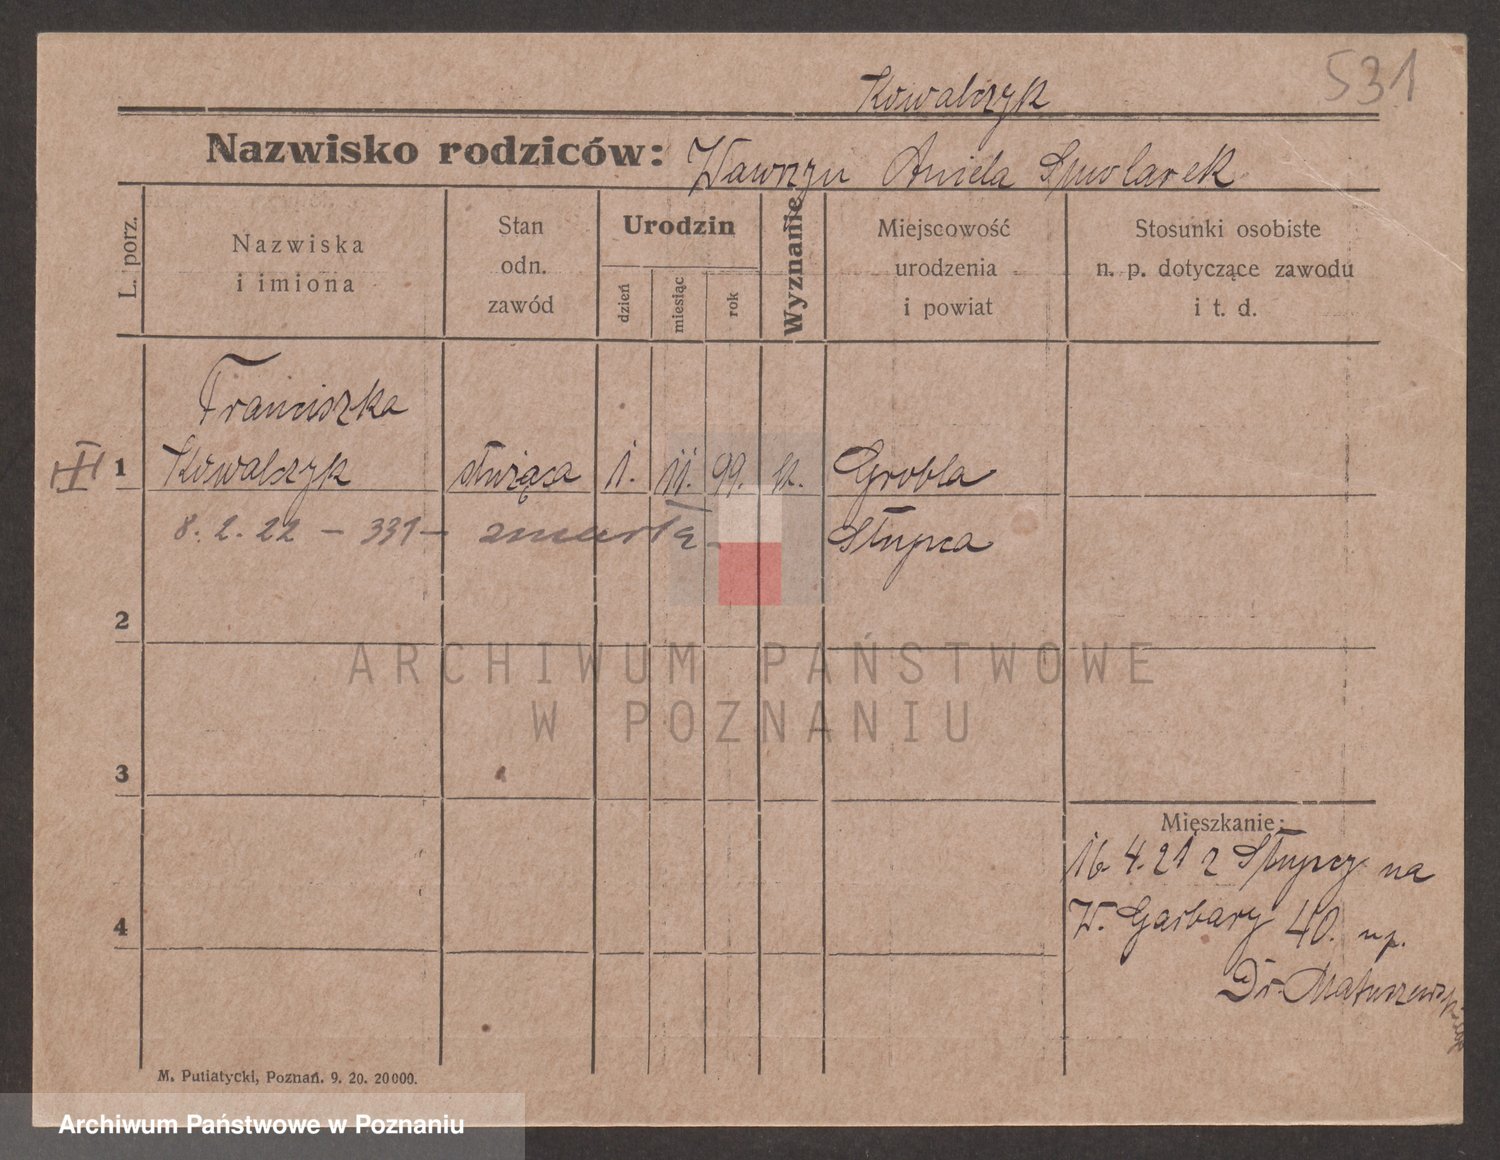 531
Kowalczyk
Nazwisko rodziców: Wawrzyn Aniela Smolarek
L. porz.
Nazwiska
i imiona
Stan
odn.
zawód
Urodzin
dzień
miesiąc
rok
Wyznanie
Miejscowość
urodzenia
i powiat
Stosunki osobiste
n. p. dotyczące zawodu
i t. d.
Franciszka
III 1 Kowalczyk służąca 1. 11. 99. k. Grobla
8. 2. 22 – 331 – zmarła – Słupca
2
3
4
ARCHIWUM PAŃSTWOWE
W POZNANIU
Mieszkanie:
16. 4. 21 z Słupcy na
W. Garbary 40. up.
Dr. Matuszewskiego
M. Putiatycki, Poznań. 9. 20. 20000.
Archiwum Państwowe w Poznaniu